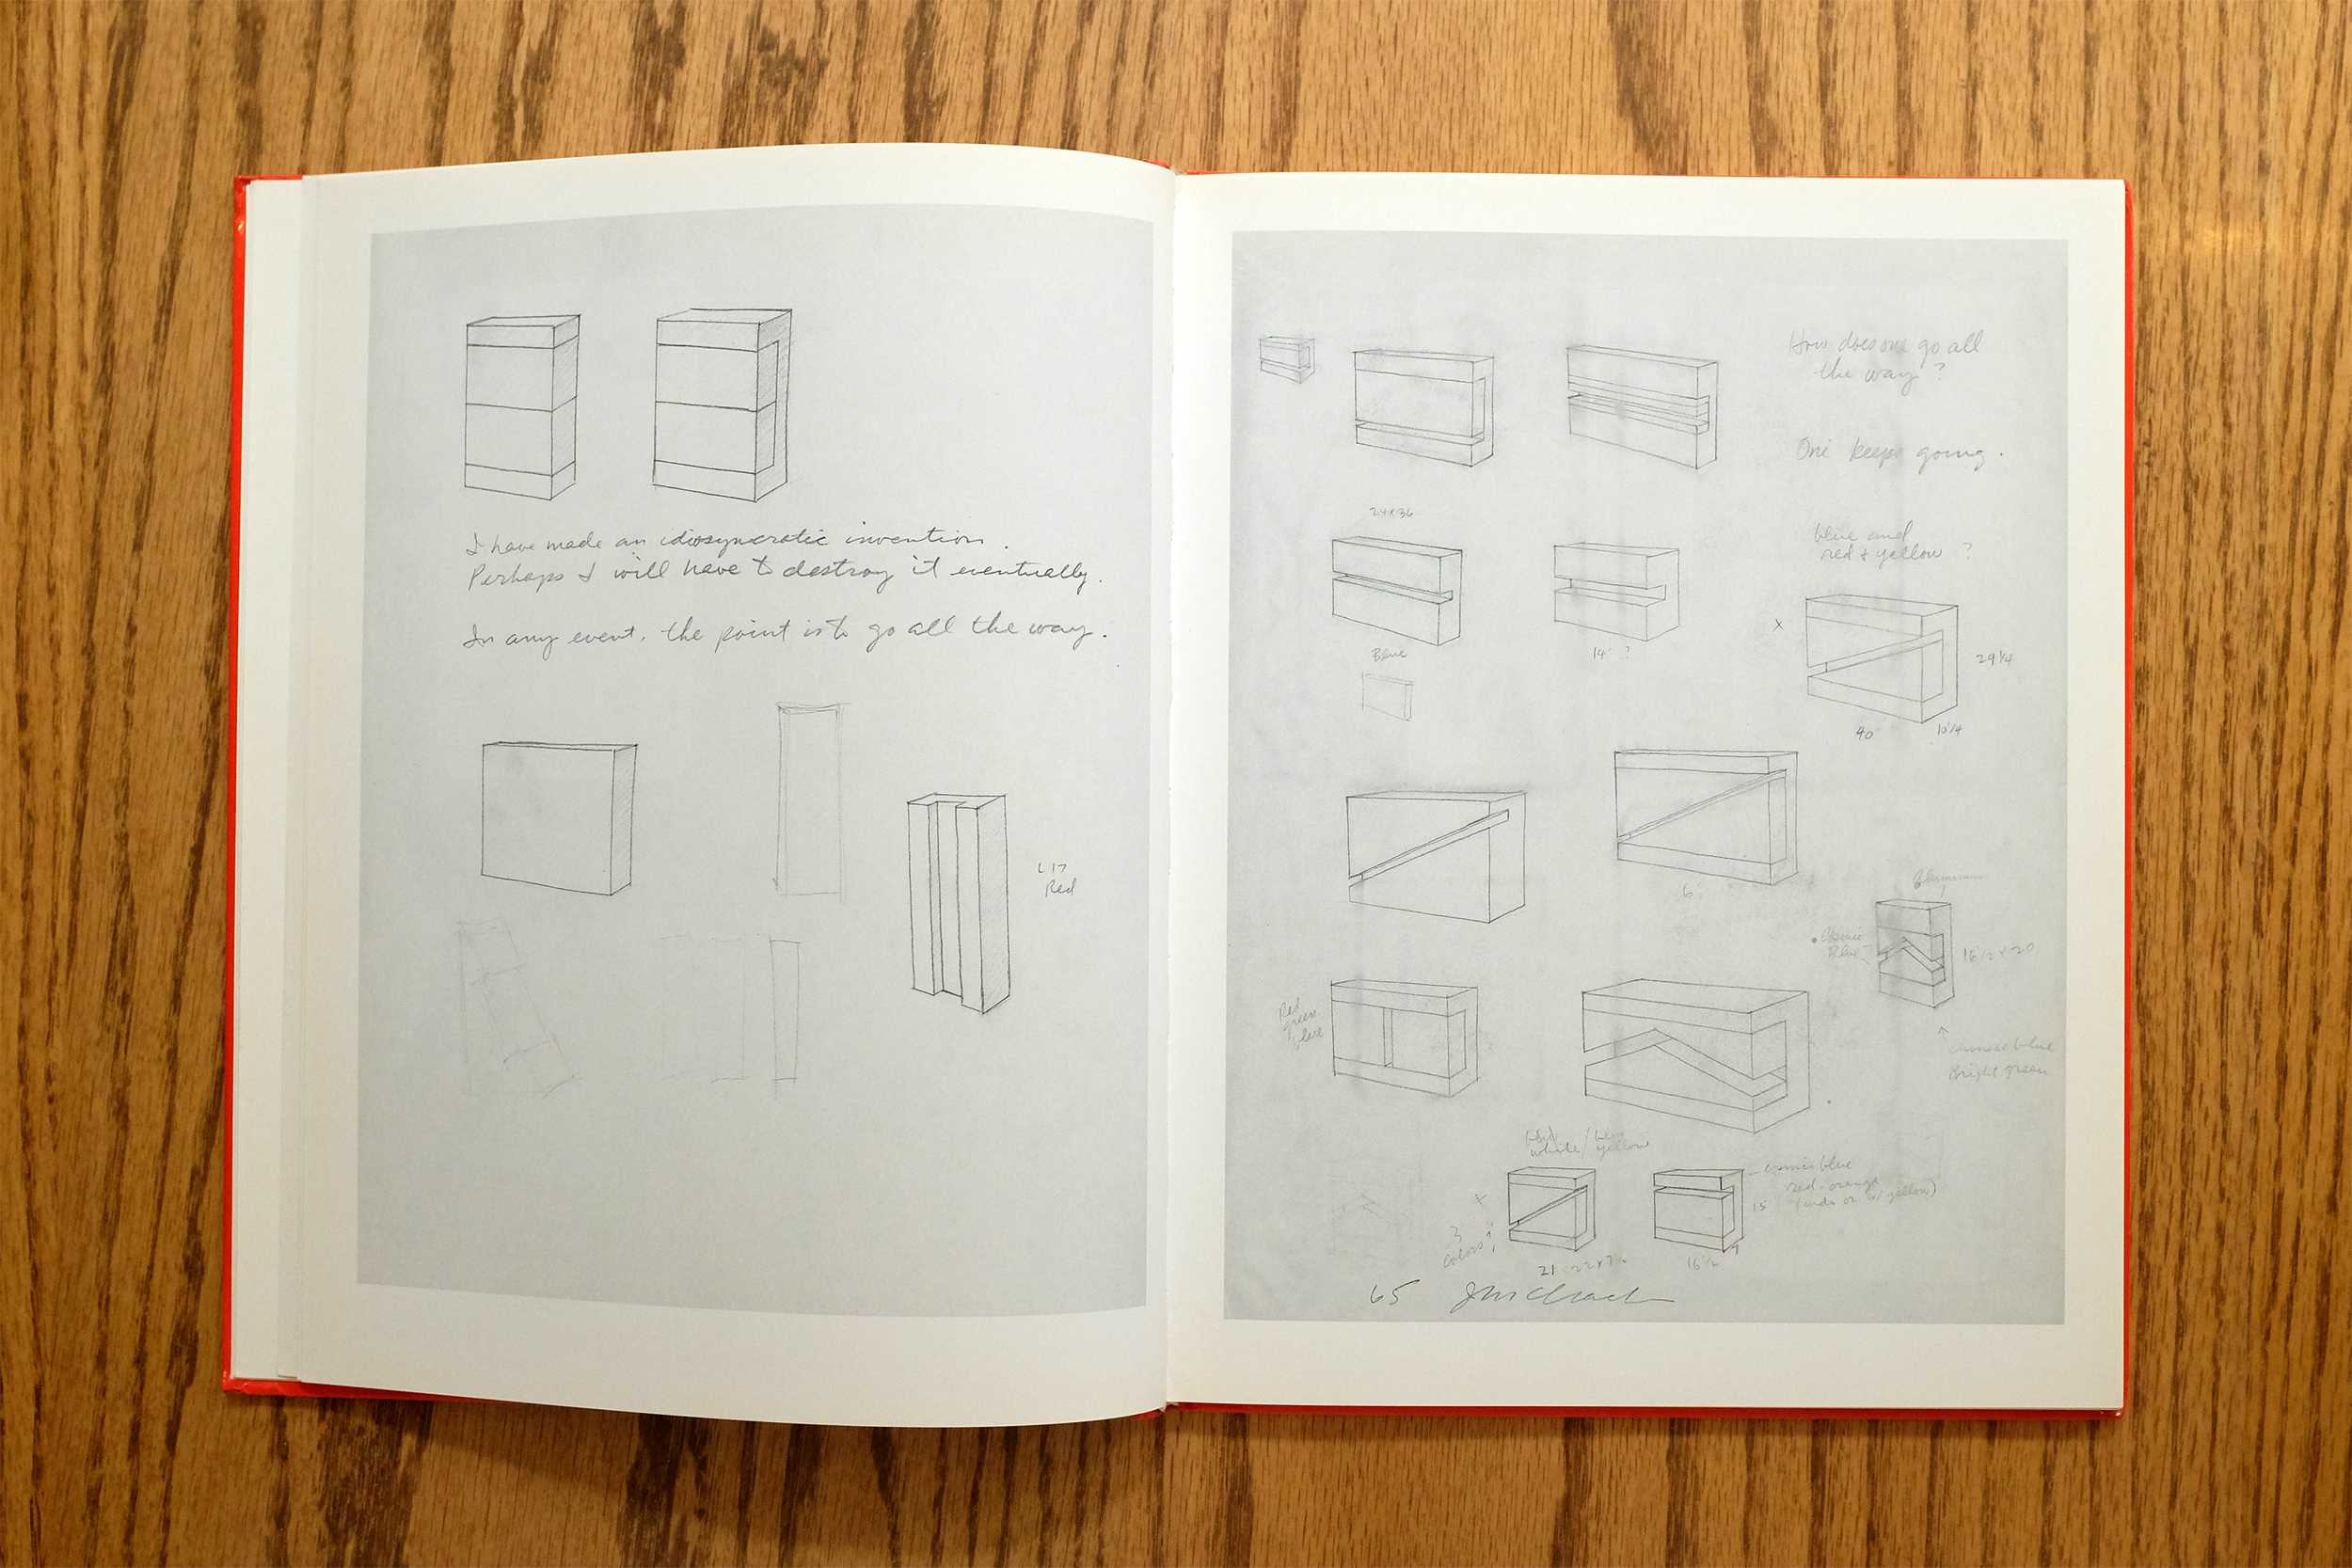 I have made an idiosyncratic invention.
Perhaps I will have to destroy it eventually.
In any event, the point is to go all the way.
Red
How does one go all
the way?
One keeps going.
24 x 36
blue and
red + yellow ?
Blue
14" ?
x
29 1/4
90"
10 1/4
6'
Aluminum
Cosmic
Blue
16 1/2 x 20
Red
green
blue
Chinese blue
Bright green
white / yellow
cosmic blue
red-orange
15
3
colors?
21
16 1/2
65